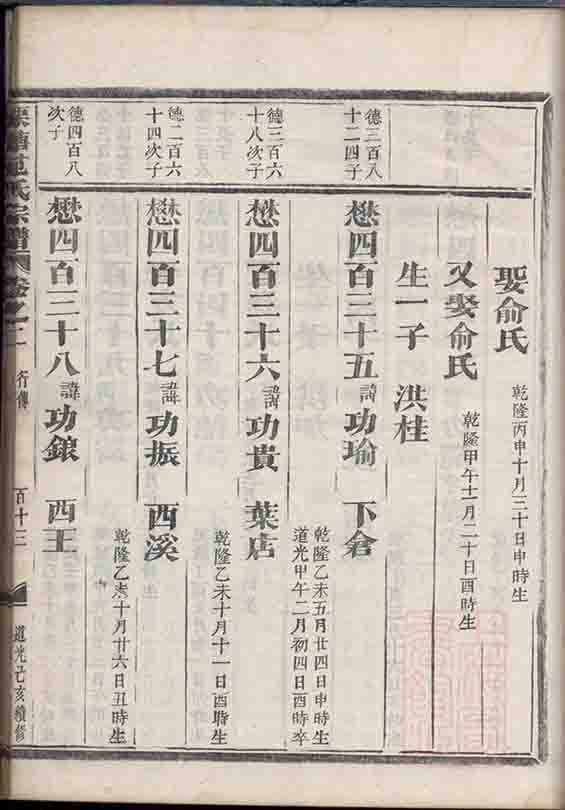 娶俞氏
乾隆丙申十月三十日申時生
又娶俞氏
乾隆甲午十一月二十日酉時生
生一子 洪桂
德三百八
十二四子
懋四百三十五 諱 功瑜 下倉
乾隆乙未五月廿四日申時生
道光甲午二月初四日酉時卒
德三百六
十八次子
懋四百三十六 諱 功貴 葉店
乾隆乙未十月十一日酉時生
德二百六
十四次子
懋四百三十七 諱 功振 西溪
乾隆乙未十月廿六日丑時生
德四百八
次子
懋四百三十八 諱 功鋃 西王
范氏宗譜 卷之二 行傳 百十三 道光己亥續修